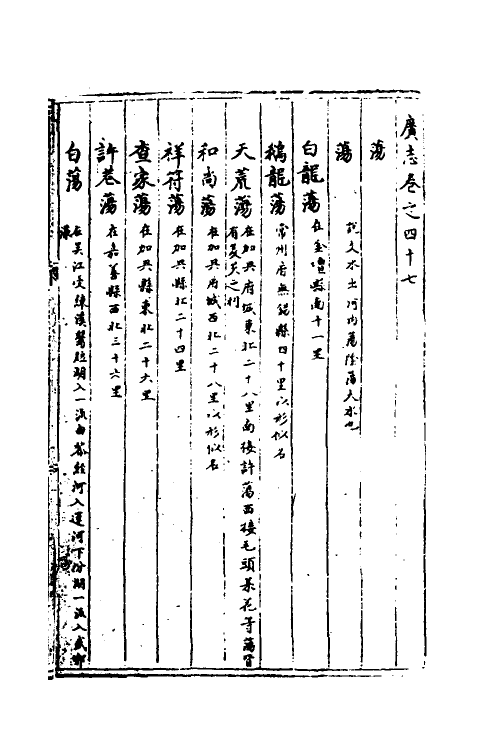 廣志卷之四十七
蕩
蕩 說文水出河內蕩陰蕩大水也
白龍蕩 在金壇縣南十一里
鵝龍蕩 常州府無錫縣四十里以形似名
天荒蕩 在加興府城東北二十八里南接許蕩西接毛頭菜花等蕩皆
有菱芡之利
和尚蕩 在加興府城西北二十八里以形似名
祥符蕩 在加興縣北二十四里
查家蕩 在加興縣東北二十六里
許巷蕩 在嘉善縣西北三十六里
白蕩 在吳江受練溪鶯脰湖入一派由茶經河入運河下汾湖一派入